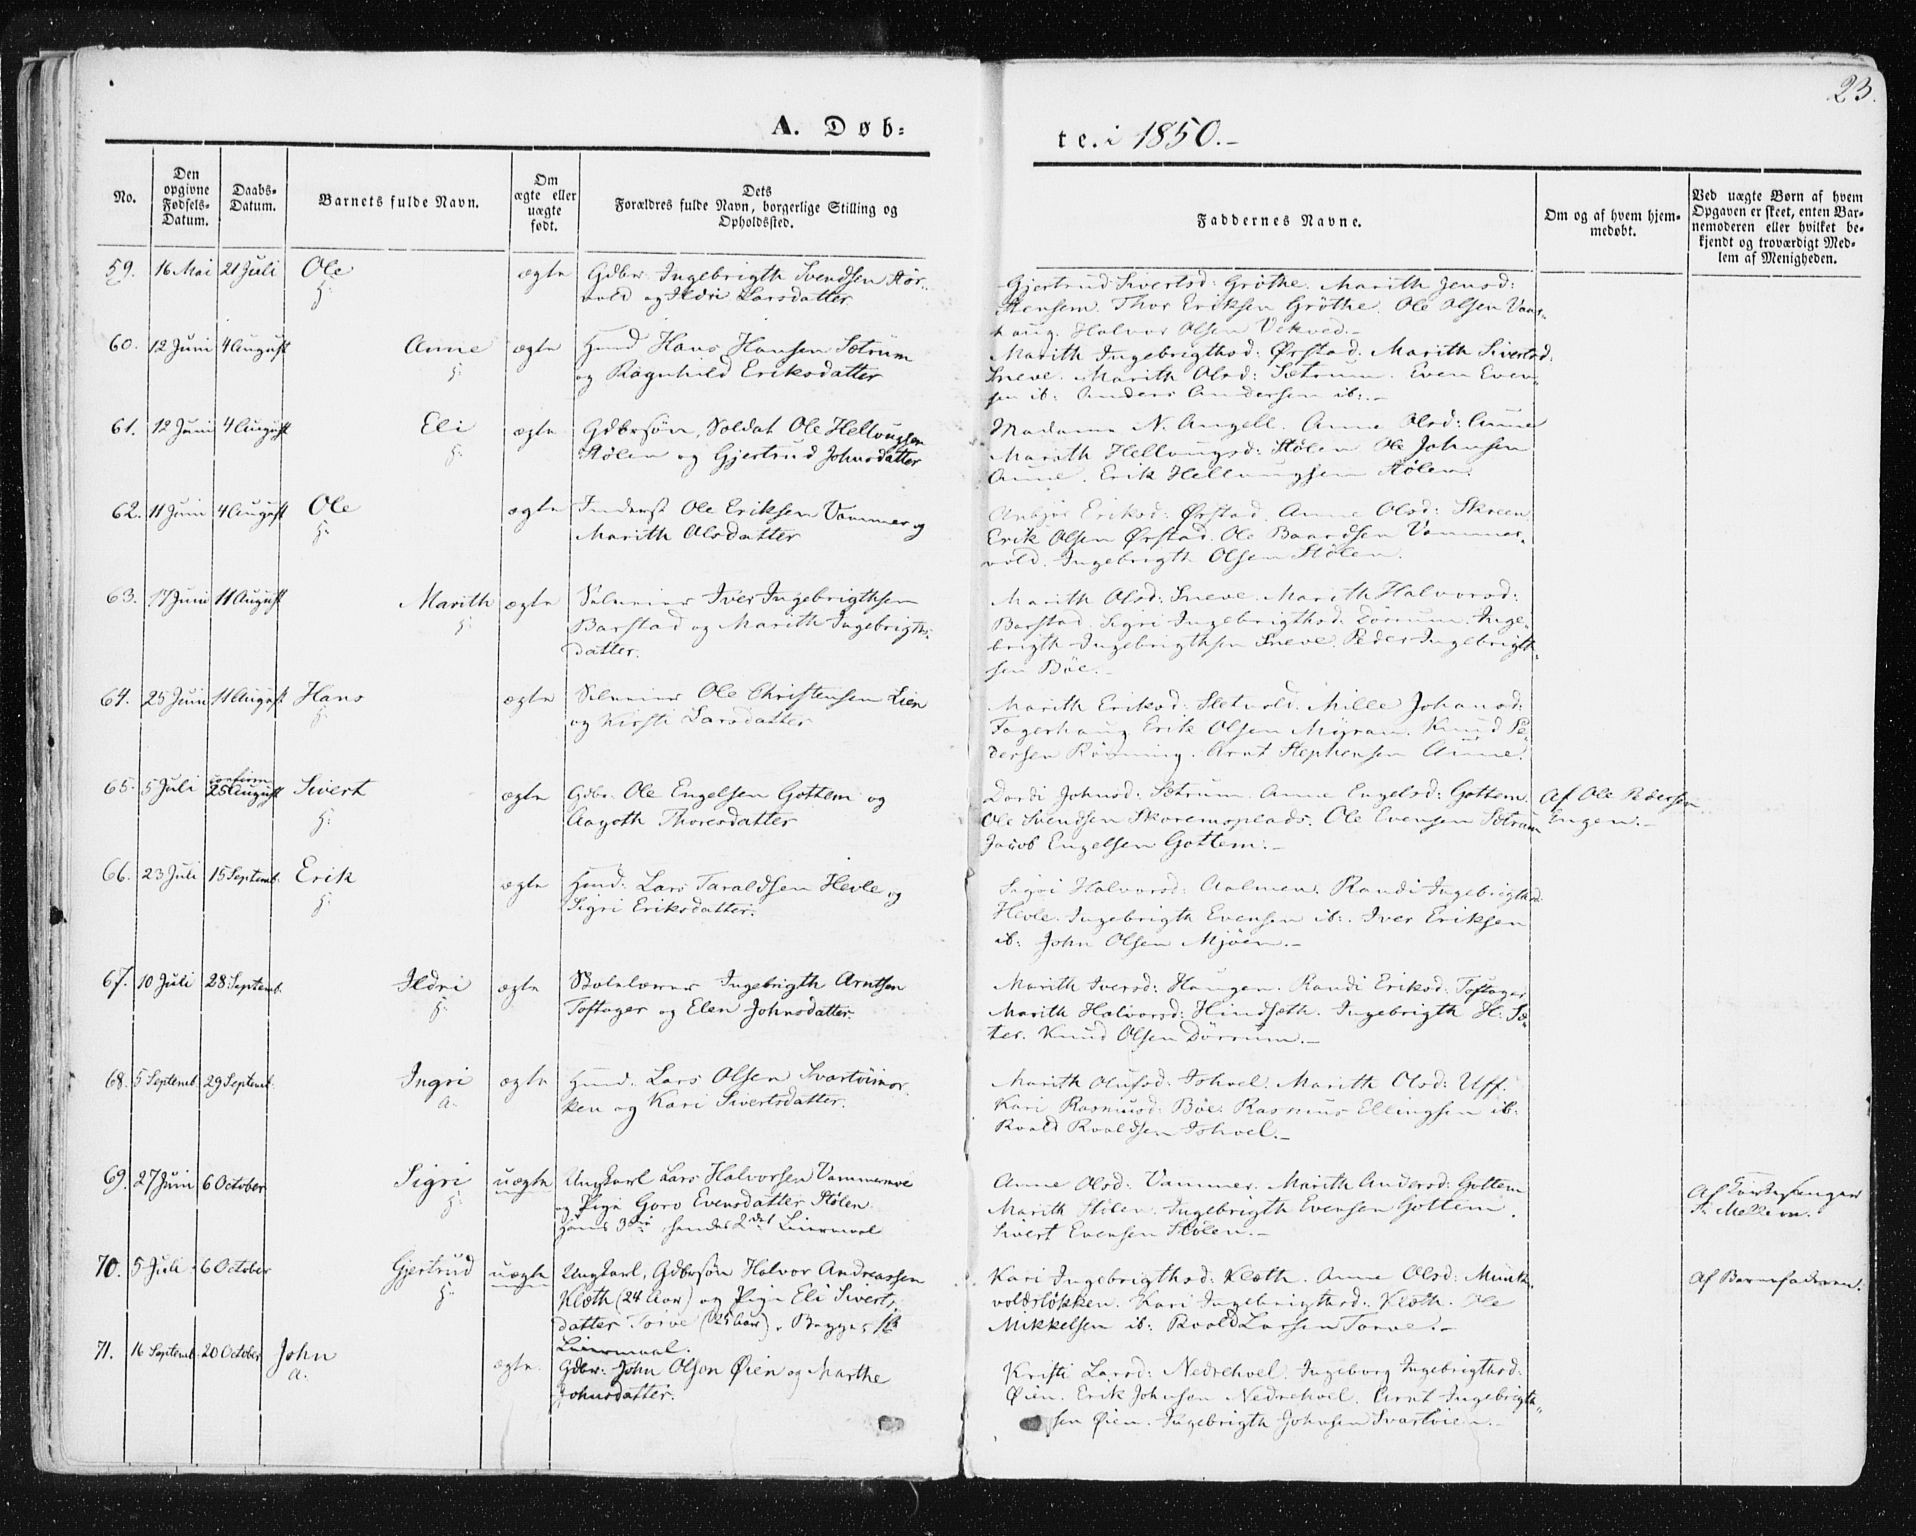 23.
A. Døb-
te. i 1850.-
No.
Den
opgivne
Fødsels-
Datum.
Daabs-
Datum.
Barnets fulde Navn.
Om
ægte eller
uægte
født.
Dets
Forældres fulde Navn, borgerlige Stilling og
Opholdssted.
Faddernes Navne.
Om og af hvem hjem-
medøbt.
Ved uægte Børn af hvem
Opgaven er skeet, enten Bar-
nemoderen eller hvilket be-
kjendt og troværdigt Med-
lem af Menigheden.
59. 16 Mai 21 Juli Ole ægte Gdbr. Ingebrigth Svendsen Stør-
h: vold og Ildri Larsdatter
Gjertrud Sivertsd: Grøthe. Marith Jensd:
Stensem. Thor Eriksen Grøthe. Ole Olsen Vors-
haug. Halvor Olsen Vekved.-
60. 12 Juni 4 August Anne ægte Huusd Hans Hansen Sætrum
h: og Ragnhild Eriksdatter
Marith Ingebrigthsd: Ørstad. Marith Sivertsd:
Sneve. Marith Olsd: Sætrum. Even Even-
sen ib: Anders Andersen ib:.-
61. 12 Juni 4 August Eli ægte Gdbrsøn, Soldat Ole Hellvugsen
h: Stølen og Gjertrud Johnsdatter
Madame N. Angell. Anne Olsd: Aune
Marith Hellvugsd: Stølen Ole Johnsen
Aune. Erik Hellvugsen Stølen.
62. 11 Juni 4 August Ole ægte Inderst Ole Eriksen Vammer og
h: Marith Olsdatter
Anbjør Eriksd: Ørstad. Anne Olsd: Skreen
Erik Olsen Ørstad. Ole Baardsen Vammer-
vold. Ingebrigth Olsen Stølen.
63. 17 Juni 11 August Marith ægte Selveier Iver Ingebrigthsen
h: Barstad og Marith Ingebrigths-
datter.
Marith Olsd: Sneve. Marith Halvorsd:
Barstad. Sigri Ingebrigthsd: Dørrum. Inge-
brigth Ingebrigthsen Sneve. Peder Ingebrigth-
sen Bøe.-
64. 25 Juni 11 August Hans ægte Selveier Ole Christensen Lien
h: og Kirsti Larsdatter
Marith Eriksd: Sletvold. Mille Johansd:
Fagerhaug Erik Olsen Myran. Knud Pe-
dersen Rønning. Arnt Stephensen Aune.
65. 5 Juli confirm. 25 August Sivert ægte Gdbr. Ole Engelsen Gottem og
h: Aagoth Thoresdatter
Dordi Johnsd: Sætrum. Anne Engelsd: Gottem. Af Ole Pedersen
Ole Svendsen Skoremsplads. Ole Evensen Sætrum Engen.-
Jacob Engelsen Gottem.-
66. 23 Juli 15 Septemb. Erik ægte Huusd: Lars Taraldsen Hevle og
h: Sigri Eriksdatter.
Sigri Halvorsd: Aalmen. Randi Ingebrigthsd:
Hevle. Ingebrigth Evensen ib:. Iver Eriksen
ib: John Olsen Mjøen.-
67. 10 Juli 28 Septemb. Ildri ægte Skolelærer Ingebrigth Arntsen
h: Toftager og Elen Johnsdatter.
Marith Iversd: Haugen. Randi Eriksd: Toftager.
Marith Halvorsd: Hindsæth. Ingebrigth H: Sæ-
ter. Knud Olsen Dørrum.-
68. 5 Septemb. 29 Septemb. Ingri ægte Huusd. Lars Olsen Svartøimor-
a. ken og Kari Sivertsdatter.
Marith Olufsd: Ishoel. Marith Olsd: Uff.
Kari Rasmusd: Bøe. Rasmus Ellingsen ib:
Roald Roaldsen Ishoel.-
69. 27 Juni 6 October Sigri uægte Ungkarl Lars Halvorsen Vammervoe
h: og Pige Goro Evensdatter Stølen
Hans 3die hendes 2det Leiermaal
Anne Olsd: Vammer. Marith Andersd: Gottem Af Kirkesanger
Marith Stølen. Ingebrigth Evensen Gottem. S. Mellem.
Sivert Evensen Stølen.-
70. 5 Juli 6 October Gjertrud uægte Ungkarl, Gdbrsøn Halvor Andreassen
h: Klæth (24 Aar) og Pige Eli Siverts-
datter Torve (25 Aar). Begges 1ste
Leiermaal.
Kari Ingebrigthsd: Klæth. Anne Olsd: Munk- Af Barnefaderen.
voldsløkken. Kari Ingebrigthsd: Klæth. Ole
Mikkelsen ib: Roald Larsen Torve.-
71. 16 Septemb. 20 October John ægte. Gdbr. John Olsen Øien og Marthe
a. Johnsdatter.
Kristi Larsd: Nedrehoel. Ingeborg Ingebrigthsd:
Øien. Erik Johnsen Nedrehoel. Arnt Ingebrigth-
sen Øien. Ingebrigth Johnsen Svartøien.-